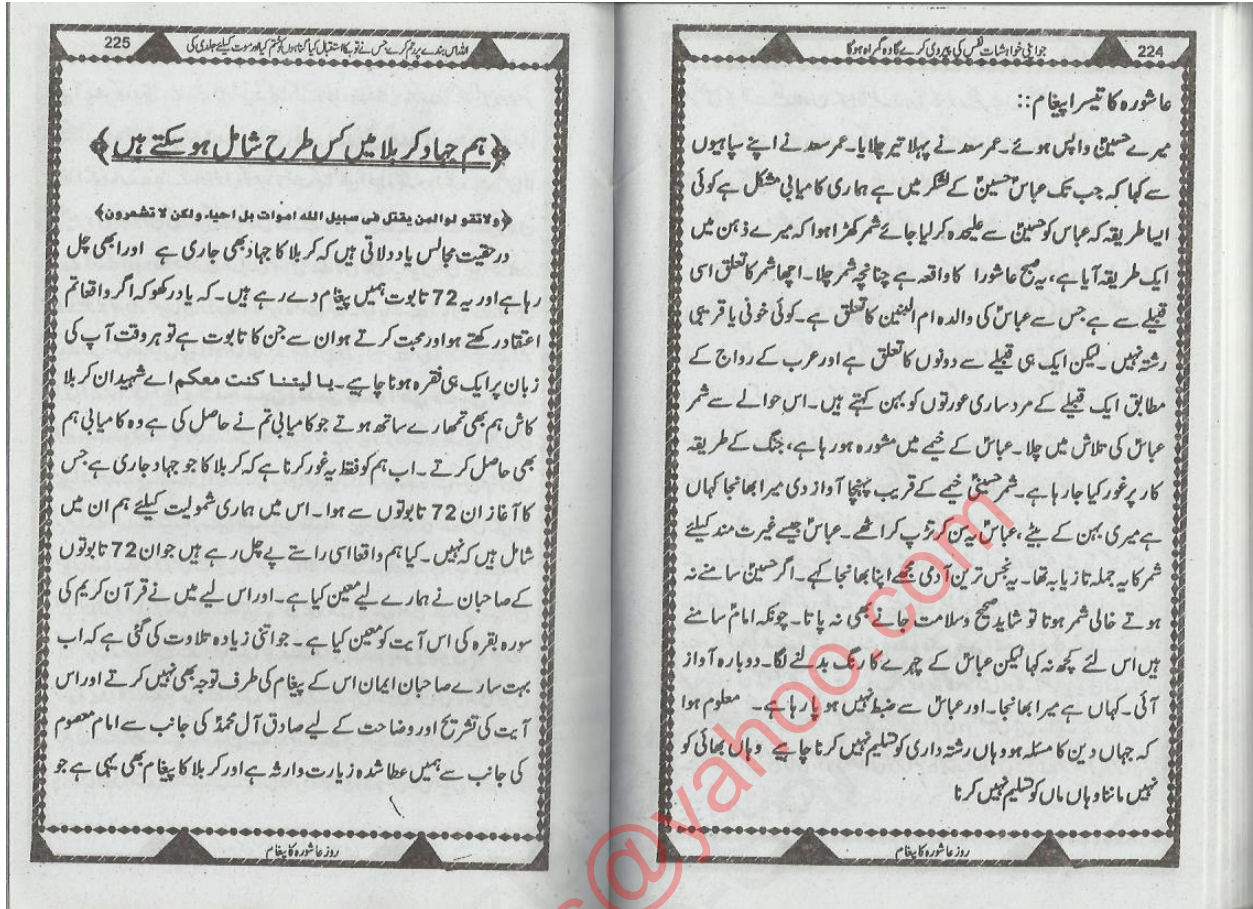 224
جو اپنی خواہشات نفس کی پیروی کرے گا وہ گمراہ ہوگا
عاشورہ کا تیسرا پیغام::
میرے حسینؑ واپس ہوئے۔ عمر سعد نے پہلا تیر چلایا۔ عمر سعد نے اپنے سپاہیوں
سے کہا کہ جب تک عباسؑ حسینؑ کے لشکر میں ہے ہماری کامیابی مشکل ہے کوئی
ایسا طریقہ کہ عباس کو حسینؑ سے علیحدہ کر لیا جائے شمر کھڑا ہوا کہ میرے ذہن میں
ایک طریقہ آیا ہے، یہ صبح عاشورا کا واقعہ ہے چنانچہ شمر چلا۔ اچھا شمر کا تعلق اسی
قبیلے سے ہے جس سے عباسؑ کی والدہ ام البنین کا تعلق ہے۔ کوئی خونی یا قریبی
رشتہ نہیں۔ لیکن ایک ہی قبیلے سے دونوں کا تعلق ہے اور عرب کے رواج کے
مطابق ایک قبیلے کے مرد ساری عورتوں کو بہن کہتے ہیں۔ اس حوالے سے شمر
عباسؑ کی تلاش میں چلا۔ عباسؑ کے خیمے میں مشورہ ہو رہا ہے، جنگ کے طریقہ
کار پر غور کیا جا رہا ہے۔ شمر حسینیؑ خیمے کے قریب پہنچا آواز دی میرا بھانجا کہاں
ہے میری بہن کے بیٹے، عباسؑ یہ سن کر تڑپ کر اٹھے۔ عباسؑ جیسے غیرت مند کیلئے
شمر کا یہ جملہ تازیانہ تھا۔ یہ نجس ترین آدمی مجھے اپنا بھانجا کہے۔ اگر حسینؑ سامنے نہ
ہوتے خالی شمر ہوتا تو شاید صحیح و سلامت جانے بھی نہ پاتا۔ چونکہ امامؑ سامنے
ہیں اس لئے کچھ نہ کہا لیکن عباسؑ کے چہرے کا رنگ بدلنے لگا۔ دوبارہ آواز
آئی۔ کہاں ہے میرا بھانجا۔ اور عباسؑ سے ضبط نہیں ہو پا رہا ہے۔ معلوم ہوا
کہ جہاں دین کا مسئلہ ہو وہاں رشتہ داری کو تسلیم نہیں کرنا چاہیے وہاں بھائی کو
نہیں ماننا وہاں ماں کو تسلیم نہیں کرنا
روز عاشورہ کا پیغام
225
اللہ اس بندے پر رحم کرے جس نے توبہ کا استقبال کیا گناہوں کو ختم کیا اور موت کیلئے جلدی کی
﴿ہم جہاد کربلا میں کس طرح شامل ہو سکتے ہیں﴾
﴿ولا تقو لوا لمن یقتل فی سبیل اللہ اموات بل احیاء ولکن لا تشعرون﴾
درحقیقت مجالس یاد دلاتی ہیں کہ کربلا کا جہاد بھی جاری ہے اور ابھی چل
رہا ہے اور یہ 72 تابوت ہمیں پیغام دے رہے ہیں۔ کہ یاد رکھو کہ اگر واقعا تم
اعتقاد رکھتے ہو اور محبت کرتے ہو ان سے جن کا تابوت ہے تو ہر وقت آپ کی
زبان پر ایک ہی فقرہ ہونا چاہیے۔ یا لیتنا کنت معکم اے شہیدان کربلا
کاش ہم بھی تمھارے ساتھ ہوتے جو کامیابی تم نے حاصل کی ہے وہ کامیابی ہم
بھی حاصل کرتے۔ اب ہم کو فقط یہ غور کرنا ہے کہ کربلا کا جو جہاد جاری ہے جس
کا آغاز ان 72 تابوتوں سے ہوا۔ اس میں ہماری شمولیت کیلئے ہم ان میں
شامل ہیں کہ نہیں۔ کیا ہم واقعا اسی راستے پے چل رہے ہیں جو ان 72 تابوتوں
کے صاحبان نے ہمارے لیے معین کیا ہے۔ اور اس لیے میں نے قرآن کریم کی
سورہ بقرہ کی اس آیت کو معین کیا ہے۔ جو اتنی زیادہ تلاوت کی گئی ہے کہ اب
بہت سارے صاحبان ایمان اس کے پیغام کی طرف توجہ بھی نہیں کرتے اور اس
آیت کی تشریح اور وضاحت کے لیے صادق آل محمدؐ کی جانب سے امام معصوم
کی جانب سے ہمیں عطا شدہ زیارت وارثہ ہے اور کربلا کا پیغام بھی یہی ہے جو
روز عاشورہ کا پیغام
@yahoo.com